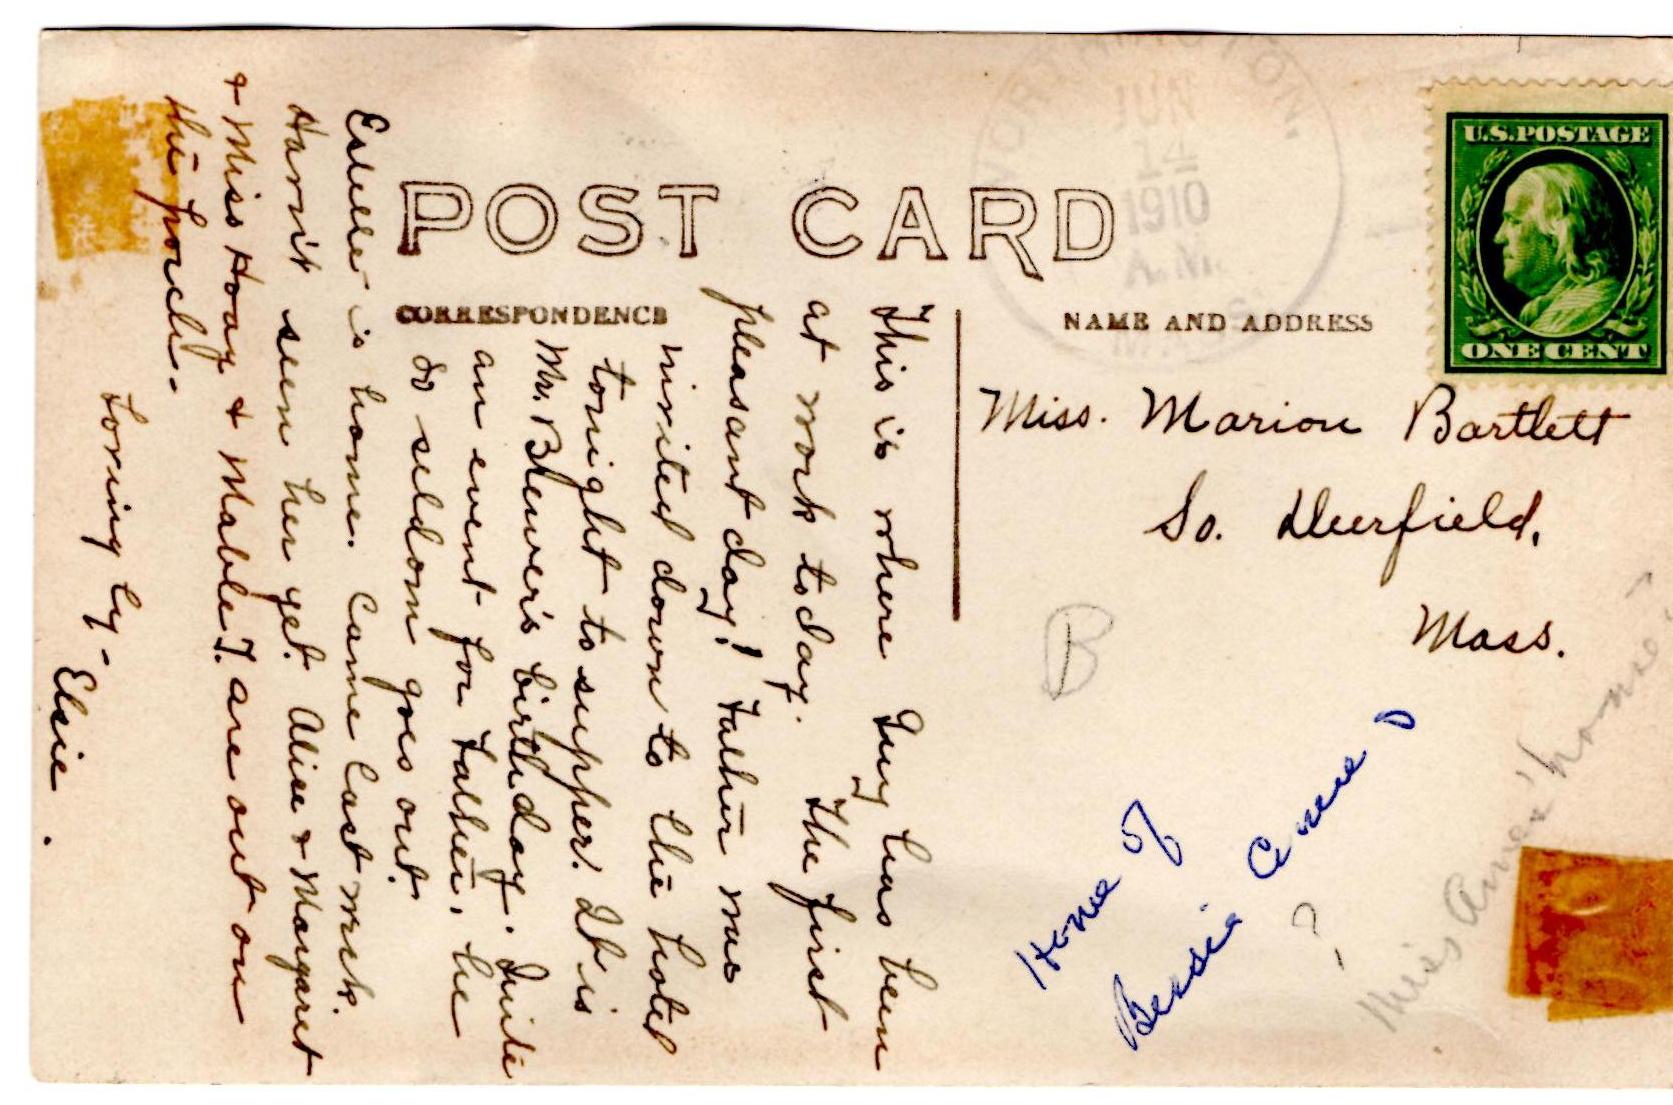 WORTHINGTON
JUN
14
1910
A.M.
MASS.
U.S. POSTAGE
ONE CENT
POST CARD
CORRESPONDENCE
NAME AND ADDRESS
This is where Guy has been
at work today. The first
pleasant day! Father was
invited down to the hotel
tonight to supper. It is
Mr. Brewer's birthday. Quite
an event for Father, he
so seldom goes out.
Estelle is home. Came last week.
Havn't seen her yet. Alice & Margaret
& Miss Hoag & Mable T. are out on
the porch.-
Loving ly-
Elsie.
Miss. Marion Bartlett
So. Deerfield,
Mass.
B
Home of
Bessie Ames
?
Miss Ames' home